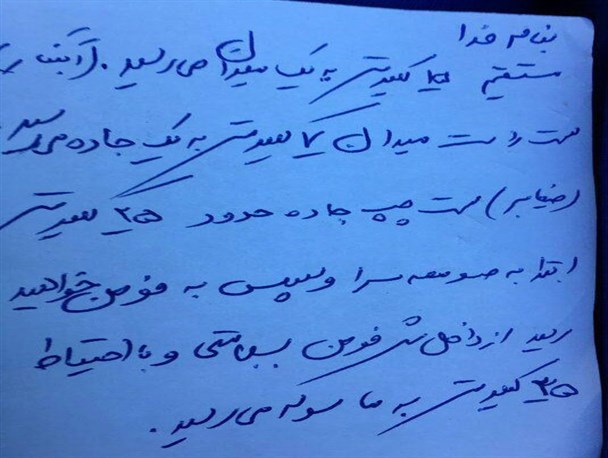 بنام خدا
مستقیم ۱۵ کیلومتر به یک میدان می رسید. (آبکنار
سمت راست میدان ۷ کیلومتر به یک جاده می رسید
(ضیابر) سمت چپ جاده حدود ۲۵ کیلومتر
ابتدا به صومعه سرا و سپس به فومن خواهید
رسید از داخل شهر فومن بسلامتی و با احتیاط
۳۵ کیلومتر به ماسوله می رسید.